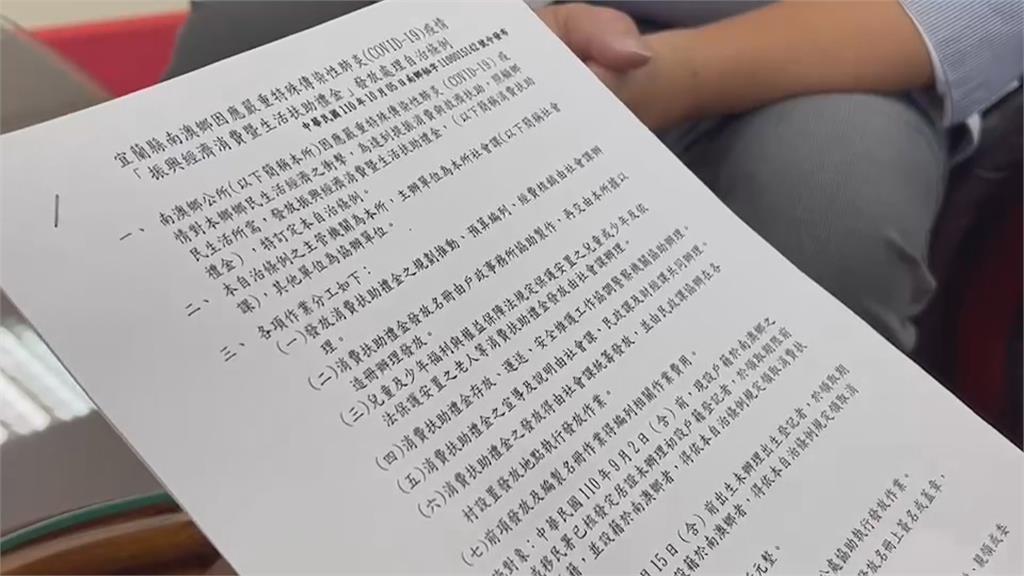 宜蘭縣南澳鄉因應嚴重特殊傳染性肺炎(COVID-19)疫情
「振興經濟消費暨生活扶助禮金」發放處理自治條例
中華民國110年10月05日
一、 南澳鄉公所(以下簡稱本所)因應嚴重特殊傳染性肺炎(COVID-19)疫
情對本鄉鄉民生活經濟之衝擊,為達到
民生活所需,發放振興經濟消費暨生活扶助禮金,(以下簡稱消費扶助
禮金),特訂定本自治條例。
二、 本自治條例之主管機關為本所,主辦單位為本所社會課(以下簡稱社會
課),其他單位為協辦單位。
三、 各項作業分工如下:
(一)發放消費扶助禮金之規劃推動、預算編列、經費核銷由社會課辦
理。
(二)消費扶助禮金發放名冊由戶政事務所協助製作,再交由本所據以
造冊辦理發放。
(三)兒童及少年福利與權益保障法規定保護安置之兒童及少年及依
法保護安置之老人等消費扶助禮金發放由社會課辦理。
(四)消費扶助禮金存放、運送、安全維護工作協調警察機關協助辦理。
(五)消費扶助禮金之宣導及說明由社會課、民政課及財經課共同辦理。
(六)消費扶助禮金之發放得由社會課統籌發放,並由民政課協助在各
村設置發放地點執行發放作業。
(七)前項發放及編製名冊作業得編列相關作業費用。
施對象:中華民國110年9月2日(含)前,現設戶籍於南澳鄉之
或移民署已核發定居證未辦理初設戶籍登記者,於領取期限前
籍,並設籍於南澳鄉者,得依本自治條例規定領取消費扶
15日(含)前出生未辦理出生登記者,於領取期
設籍於南澳鄉者,得依本自治條例規定領取消
元整。